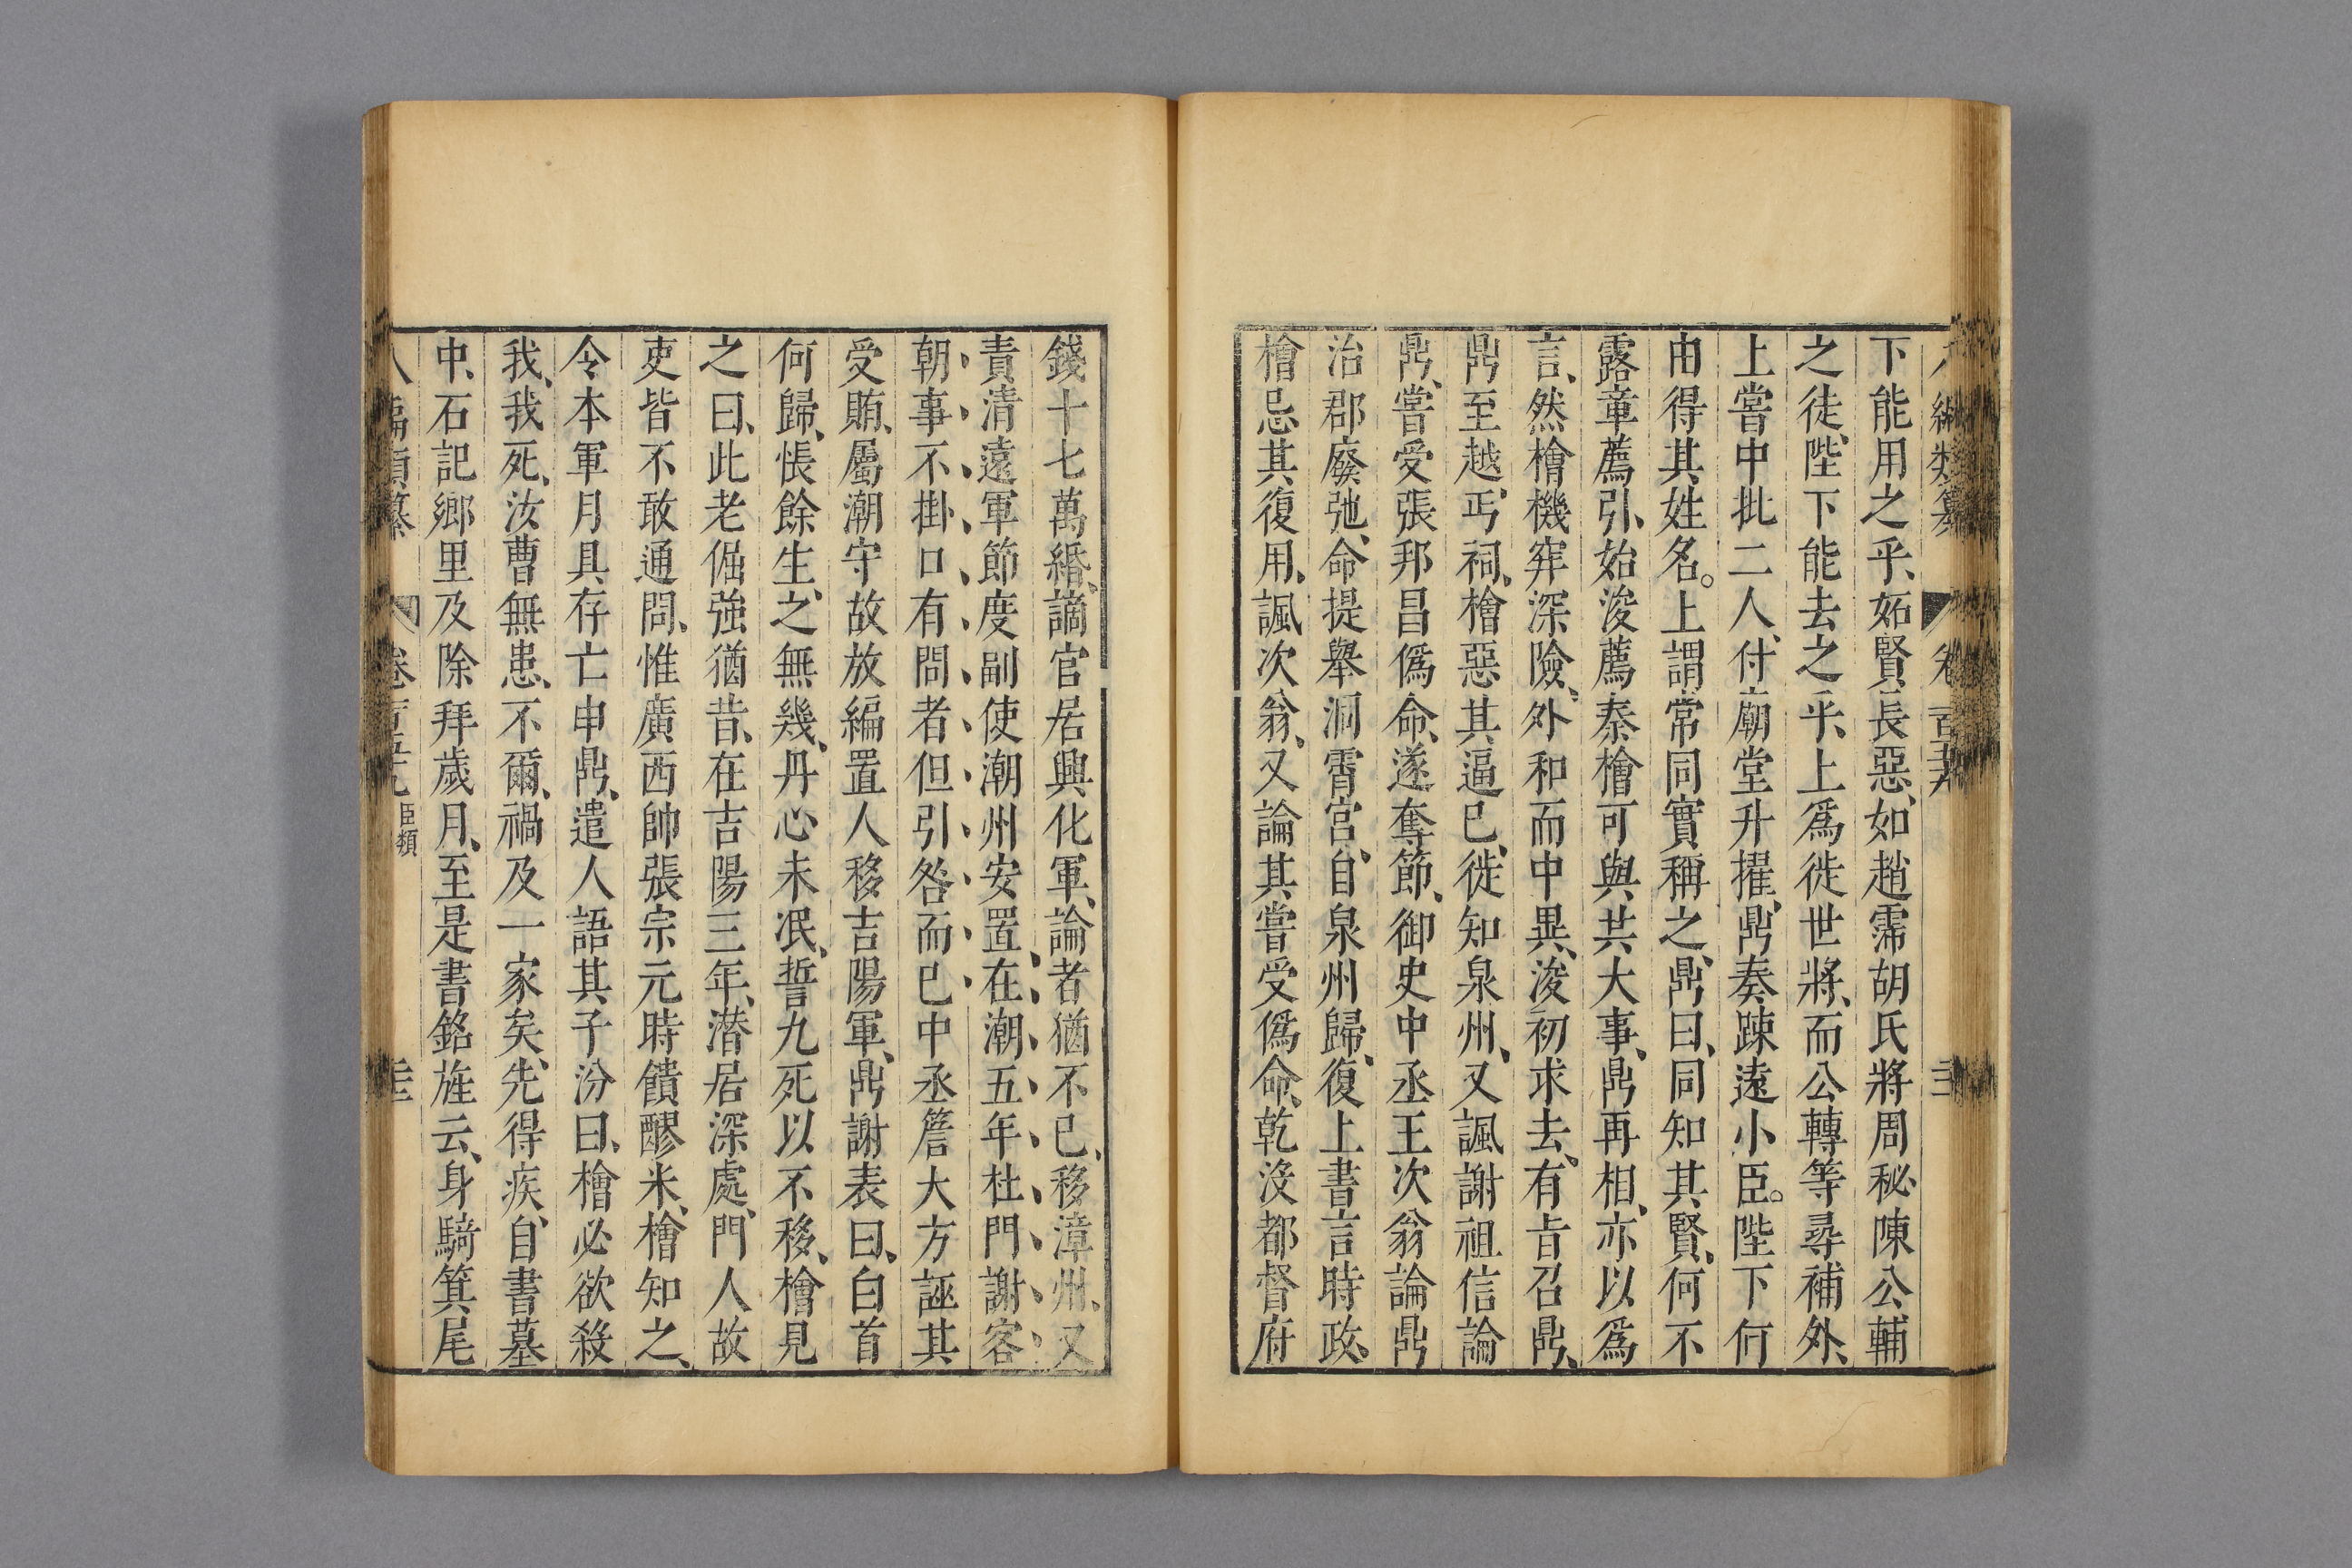 八編類纂 卷一百五十九 三十二
下能用之乎、妬賢長惡、如趙霈胡氏將周秘陳公輔
之徒、陛下能去之乎、上爲徙世將、而公轉等尋補外、
上嘗中批二人、付廟堂升擢、鼎奏疎遠小臣。陛下何
由得其姓名。上謂常同實稱之、鼎曰、同知其賢、何不
露章薦引、始浚薦秦檜可與共大事、鼎再相、亦以爲
言、然檜機穽深險、外和而中異、浚初求去、有旨召鼎、
鼎至越丐祠、檜惡其逼己、徙知泉州、又諷謝祖信論
鼎、嘗受張邦昌僞命、遂奪節、御史中丞王次翁論鼎
治郡廢弛、命提舉洞霄宮、自泉州歸、復上書言時政、
檜忌其復用、諷次翁、又論其嘗受僞命、乾沒都督府
錢十七萬緡、謫官居興化軍、論者猶不已、移漳州、又
責清遠軍節度副使潮州安置、在潮五年杜門謝客
朝事不掛口、有問者但引咎而已中丞詹大方誣其
受賄、屬潮守故放編置人移吉陽軍、鼎謝表曰、白首
何歸、悵餘生之無幾、丹心未泯、誓九死以不移、檜見
之曰、此老倔強猶昔、在吉陽三年、潛居深處、門人故
吏皆不敢通問、惟廣西帥張宗元時饋醪米、檜知之、
令本軍月具存亡申鼎、遣人語其子汾曰、檜必欲殺
我、我死、汝曹無患、不爾、禍及一家矣、先得疾、自書墓
中、石記鄉里及除拜歲月、至是書銘旌云、身騎箕尾
八編類纂 卷一百五十九 臣類